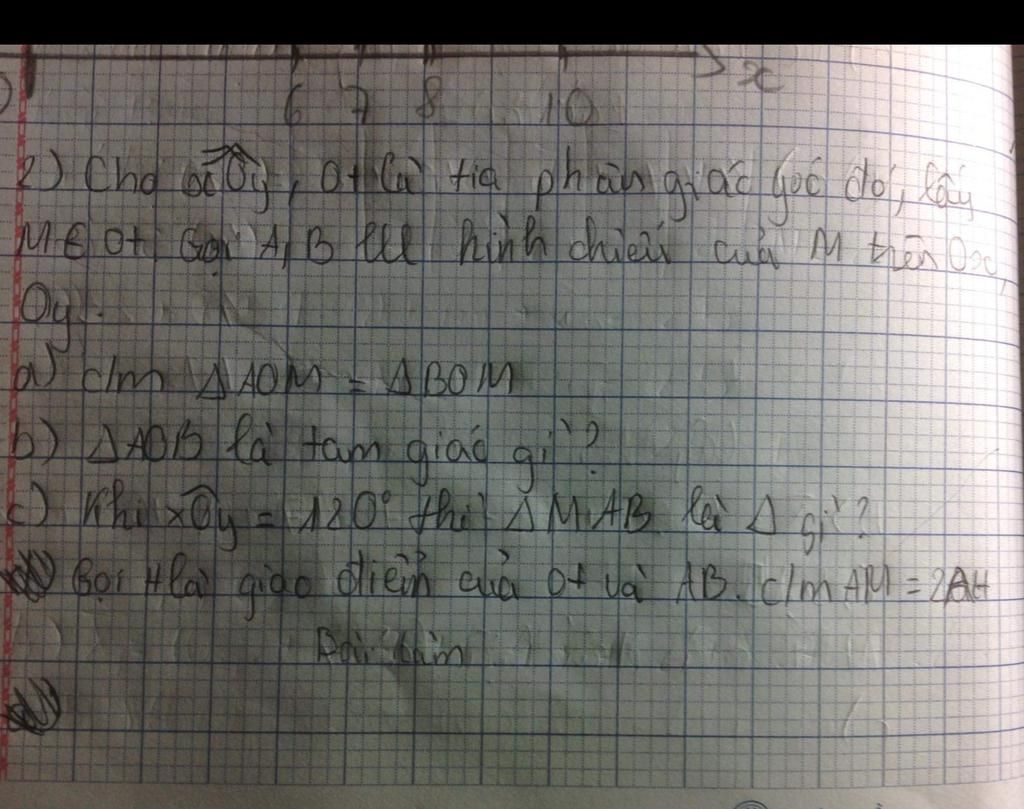 x
6 7 8 10
2) Cho xÔy, Ot là tia phân giác góc đó, lấy
M ∈ Ot. Gọi A, B lll hình chiếu của M trên Ox,
Oy.
a) c/m ΔAOM = ΔBOM
b) ΔAOB là tam giác gì?
c) Khi xÔy = 120° thì ΔMAB là Δ gì?
Gọi H là giao điểm của Ot và AB. c/m AM = 2AH
Bài làm